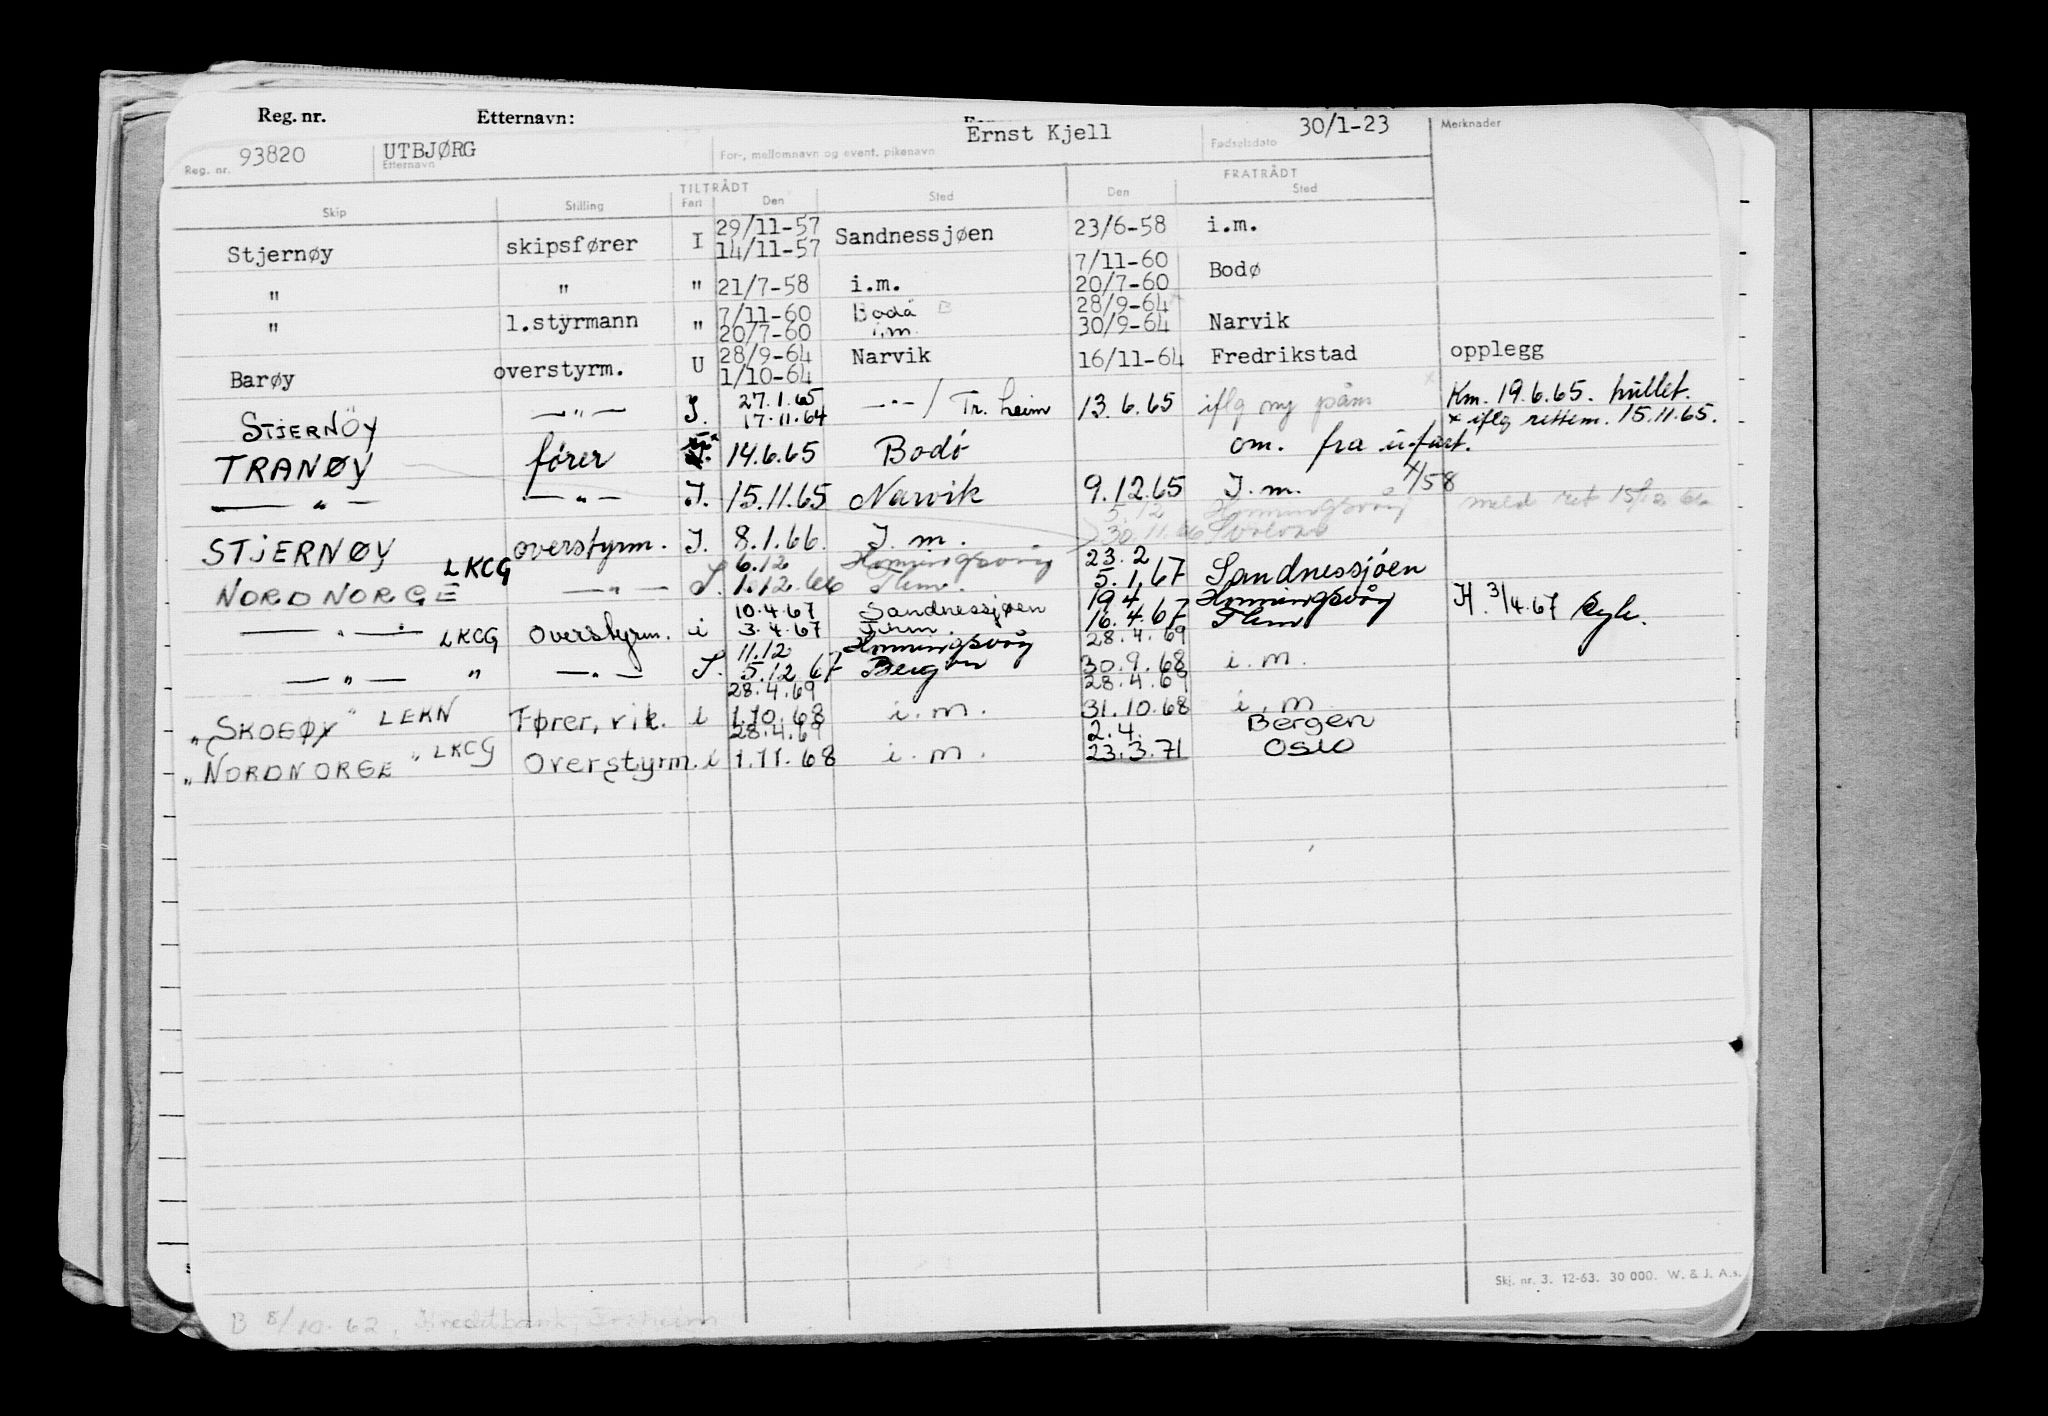 Reg. nr. Etternavn:
93820 UTBJØRG Ernst Kjell 30/1-23 Merknader
Reg. nr. Etternavn For-, mellomnavn og event. pikenavn Fødselsdato
TILTRÅDT FRATRÅDT
Skip Stilling Fart Den Sted Den Sted
29/11-57
Stjernøy skipsfører I 14/11-57 Sandnessjøen 23/6-58 i.m.
7/11-60
" " " 21/7-58 i.m. 20/7-60 Bodø
7/11-60 Bodø 28/9-64
" 1.styrmann " 20/7-60 i.m. 30/9-64 Narvik
28/9-64
Barøy overstyrm. U 1/10-64 Narvik 16/11-64 Fredrikstad opplegg
27.1.65 Km. 19.6.65. hullet.
STJERNÖY —"— I. 17.11.64 —"—/ Tr. heim 13.6.65 iflg ny påm x iflg rettem. 15.11.65.
TRANØY fører 14.6.65 Bodö om. fra u-fart.
— " — — " — I. 15.11.65 Narvik 9.12.65 I. m. 4/58
5.12 Honningsvåg meld ret
STJERNØY overstyrm. I. 8.1.66. I. m. 30.11.66 Svolvær
6.12 Honningsvåg 23.2
NORDNORGE LKCG — " — I. 1.12.66 5.1.67 Sandnessjøen
10.4.67 Sandnessjøen 19.4 Honningsvåg
— " — LKCG Overstyrm. i 3.4.67 16.4.67 H. 3/4.67
11.12 Honningsvåg 28.4.69
— " — " — " — I. 5.12 67 Bergen 30.9.68 i.m.
28.4.69 28.4.69
"SKOGØY" LEKN Fører, vik. i 1.10.68 i.m. 31.10.68 i.m
28.4.69 2.4. Bergen
"NORDNORGE" LKCG Overstyrm. i 1.11.68 i.m. 23.3.71 Oslo
Skj. nr. 3. 12-63. 30 000. W. & J. A.s.
B 8/10.62, Kreditbank,